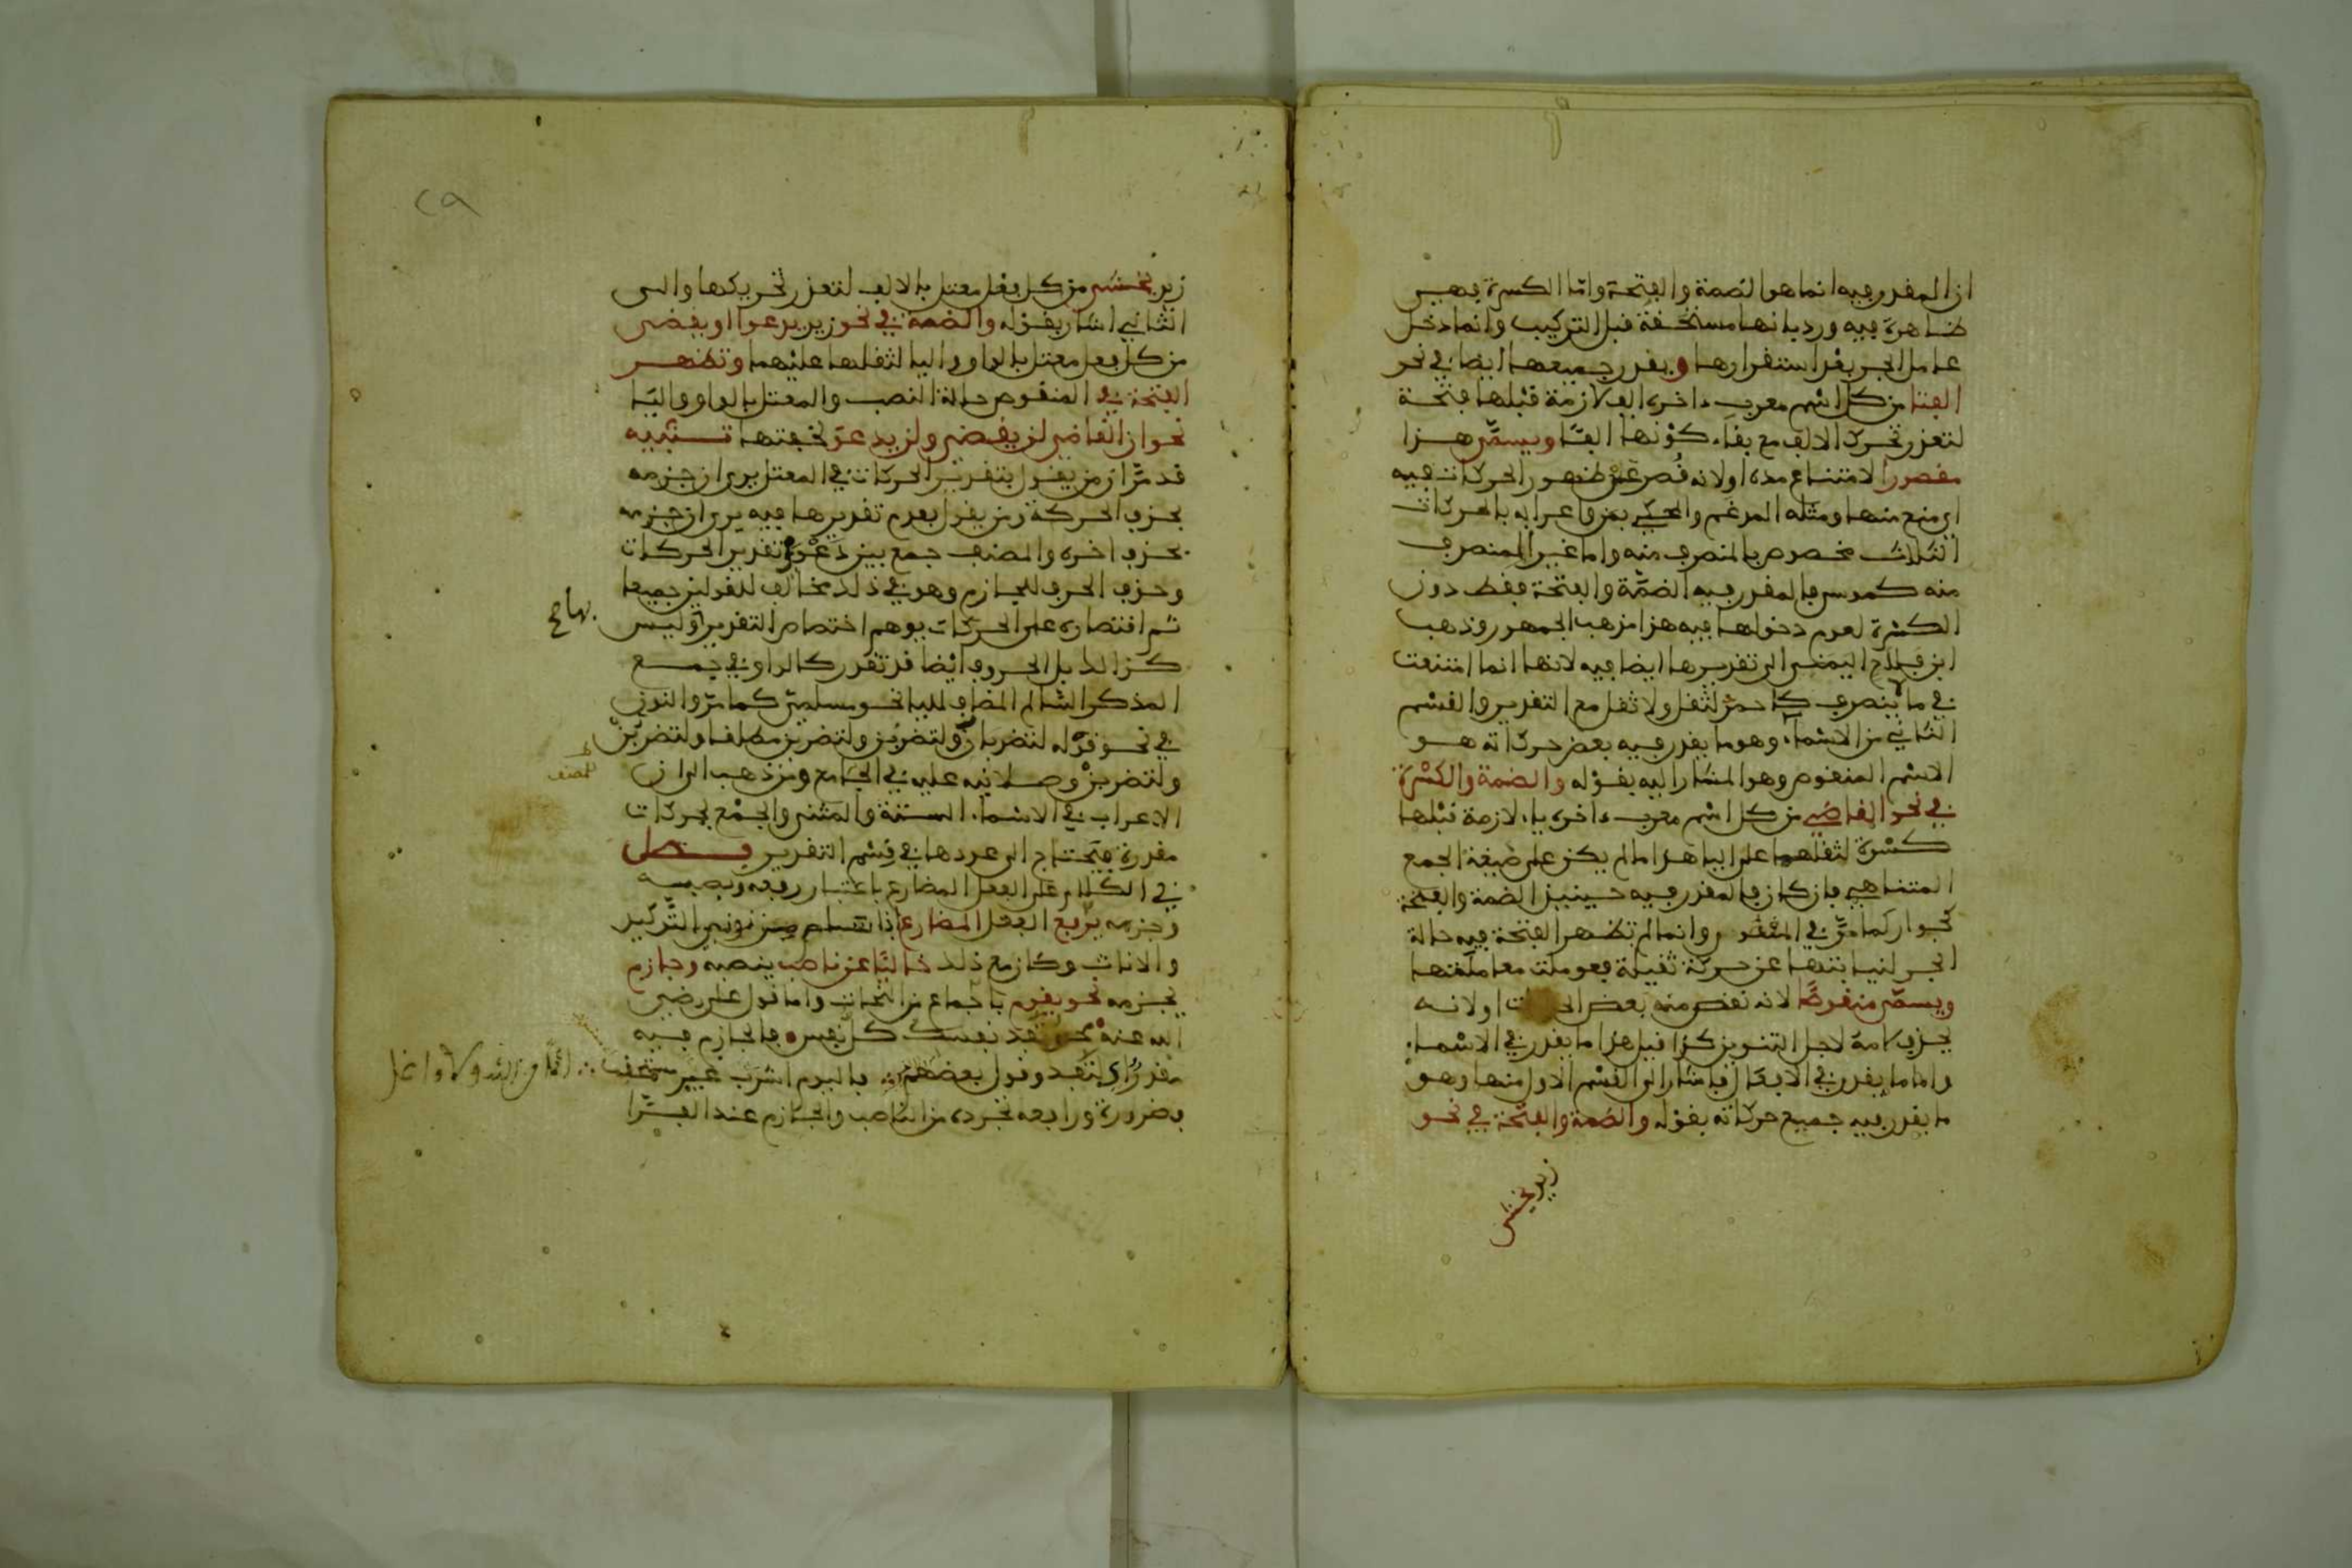 ان المقدر فيه انما هو الضمة والفتحة واما الكسرة فهي
ظاهرة فيه ورد بانها مستحقة قبل التركيب وانما دخل
عامل الجر بعد استقرارها ويقدر جميعها ايضا في نحو
الفتا من كل اسم معرب ءاخره الف لازمة قبلها فتحة
لتعذر تحرك الالف مع بقاء كونها الفا ويسمى هذا
مقصورا لامتناع مده او لانه قصر عن ظهور الحركات فيه
اي منع منها ومثله المدغم والمحكي بمن واعرابه بالحركات
الثلاث مخصوص بالمنصرف منه واما غير المنصرف
منه كموسى فالمقدر فيه الضمة والفتحة فقط دون
الكسرة لعدم دخولها فيه هذا مذهب الجمهور وذهب
ابن فلاح اليمني الى تقديرها ايضا فيه لانها انما امتنعت
في ما لا ينصرف كاحمد للثقل ولا ثقل مع التقدير والقسم
الثاني من الاسماء وهو ما يقدر فيه بعض حركاته هو
الاسم المنقوص وهو المشار اليه بقوله والضمة والكسرة
في نحو القاضي من كل اسم معرب ءاخره ياء لازمة قبلها
كسرة لثقلهما على اليا هذا ما لم يكن على صيغة الجمع
المتناهي فان كان فالمقدر فيه حينئذ الضمة والفتحة
كجوار كما مر في وانما لم تظهر الفتحة فيه حالة
الجر لنيابتها عن حركة ثقيلة فعوملت معاملتها
ويسمى منقوصا لانه نقص منه بعض الحركات او لانه
يحذف لامه لاجل التنوين كذا قيل هذا ما يقدر في الاسماء
واما ما يقدر في الافعال فاشار الى القسم الاول منها وهو
ما يقدر فيه جميع حركاته بقوله والضمة والفتحة في نحو
زيد يخشى
٢٩
زيد يخشى من كل فعل معتل بالالف لتعذر تحريكها والى
الثاني اشار بقوله والضمة في نحو زيد يدعوا او يقضي
من كل فعل معتل بالواو واليا لثقلها عليهما وتظهر
الفتحة في المنقوص حالة النصب والمعتل بالواو واليا
نحو ان القاضي لن يقضي ولن يدعو لخفتها تنبيه
قد مر ان من يقول بتقدير الحركات في المعتل يرى ان جزمه
بحذف الحركة ومن يقول بعدم تقديرها فيه يرى ان جزمه
بحذف اخره والمصنف جمع بين دعوى تقدير الحركات
وحذف الحرف للجازم وهو في ذلك مخالف للقولين جميعا
ثم اقتصاره على الحركات يوهم اختصاص التقدير وليس
بها صح
كذلك بل الحروف ايضا قد تقدر كالواو في جمع
المذكر السالم المضاف لليا نحو مسلمي كما مر والنون
في نحو قوله لتضربان ولتضربن ولتضربن مطلقا ولتضربن
المصنف
ولتضربن وصلا نبه عليه في الجامع ومن ذهب الى ان
الاعراب في الاسماء الستة والمثنى والجمع بحركات
مقدرة فيحتاج الى عدها في قسم التقدير فصل
في الكلام على الفعل المضارع باعتبار رفعه ونصبه
وجزمه يرفع الفعل المضارع اذا سلم من نوني التوكيد
والاناث وكان مع ذلك خاليا عن ناصب ينصبه وجازم
يجزمه نحو يقوم باجماع من النحات واما قول علي رضي
الله عنه محمد تفد نفسك كل نفس فالجازم فيه
مقدر اي لتفد وقول بعضهم فاليوم اشرب غير مستحقب
اثما من الله ولا واغل
فضرورة ورافعه تجرده من الناصب والجازم عند الفرا